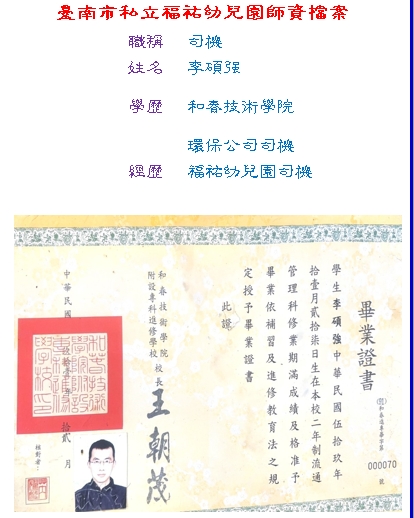 臺南市私立福祐幼兒園師資檔案
職稱 司機
姓名 李碩强
學歷 和春技術學院
環保公司司機
經歷 福祐幼兒園司機
畢業證書
和春進專畢字第
000070
號
學生李碩強中華民國伍拾玖年
拾壹月貳拾柒日生在本校二年制流通
管理科修業期滿成績及格准予
畢業依補習及進修教育法之規
定授予畢業證書
此證
和春技術學院
附設專科進修學校 校長 王朝茂
中華民國
拾貳 月
核對者：